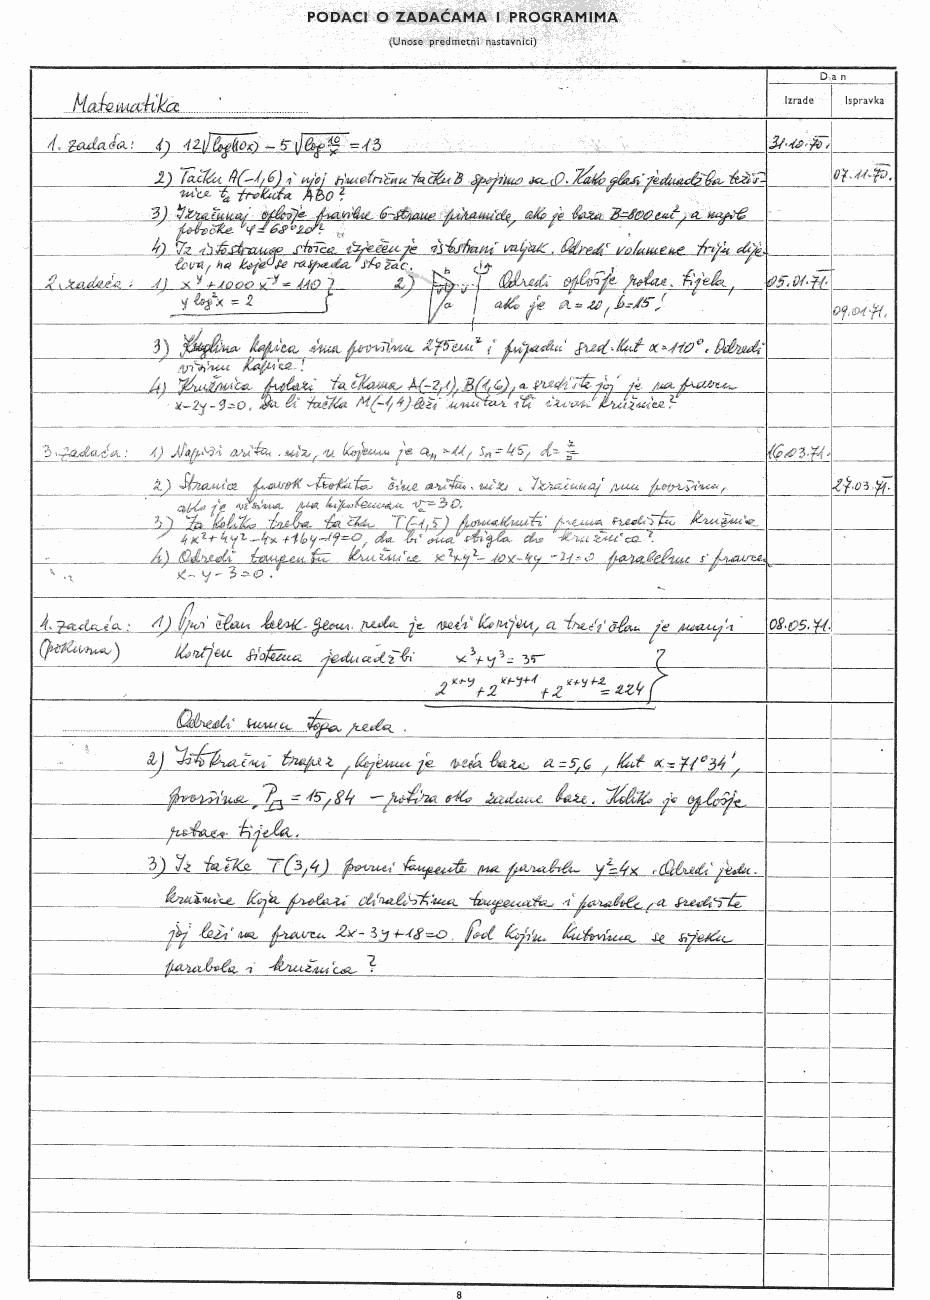 PODACI O ZADAĆAMA I PROGRAMIMA
(Unose predmetni nastavnici)
Dan
Matematika
Izrade
Ispravka
1. zadaća: 1) 12√log(10x) - 5√log 10/x = 13
31.10.70.
2) Tačku A(-1,6) i njoj simetričnu tačku B spojimo sa O. Kako glasi jednadžba težiš-
07.11.70.
nice ta trokuta ABO?
3) Izračunaj oplošje pravilne 6-strane piramide, ako je baza B=800cm², a nagib
pobočke φ=68°20'?
4) Iz istostranog stošca izječen je istostrani valjak. Odredi volumene triju dije-
lova, na koje se raspada stožac.
2. zadaća: 1) x^y + 1000 x^-y = 110
y log²x = 2
2) b a Odredi oplošje rotac. tijela,
ako je a=20, b=15!
05.01.71.
09.01.71.
3) Kuglina kapica ima površinu 275cm² i pripadni sred. kut α=110°. Odredi
visinu kapice!
4) Kružnica prolazi tačkama A(-2,1), B(1,6), a središte joj je na pravcu
x-2y-9=0. Da li tačka M(-1,4) leži unutar ili izvan kružnice?
3. zadaća: 1) Napiši aritm. niz, u kojemu je an=11, sn=45, d=
16.03.71.
2) Stranice pravok. trokuta čine aritm. niz. Izračunaj mu površinu,
27.03.71.
ako je visina na hipotenuzu v=30.
3) Za koliko treba tačku T(-1,5) pomaknuti prema središtu kružnice
4x²+4y²-4x+16y-19=0, da bi ona stigla do kružnice?
4) Odredi tangentu kružnice x²+y²-10x-4y-21=0 paralelnu s pravcem
x-y-3=0.
4. zadaća: 1) Prvi član besk. geom. reda je veći korijen, a treći član je manji
08.05.71.
(pokusna) korijen sistema jednadžbi x³+y³=35
2^x+y + 2^x+y+1 + 2^x+y+2 = 224
Odredi sumu toga reda.
2) Istokračni trapez, kojemu je veća baza a=5,6, kut α=71°34',
površina P=15,84 - rotira oko zadane baze. Koliko je oplošje
rotac. tijela.
3) Iz tačke T(3,4) povuci tangente na parabolu y²=4x. Odredi jedn.
kružnice koja prolazi diralištima tangenata i parabole, a središte
joj leži na pravcu 2x-3y+18=0. Pod kojim kutovima se sijeku
parabola i kružnica?
8